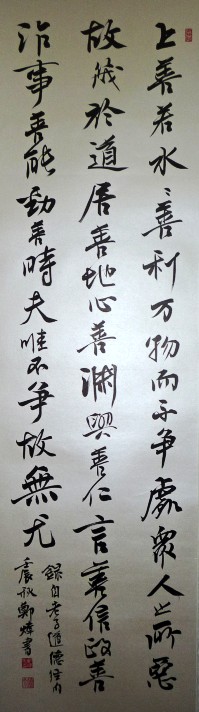 上善若水〻善利万物而不争處衆人之所惡
故幾於道居善地心善渊與善仁言善信政善
治事善能動善時夫唯不争故無尤
録自老子道德经内
壬辰秋鄭煒書